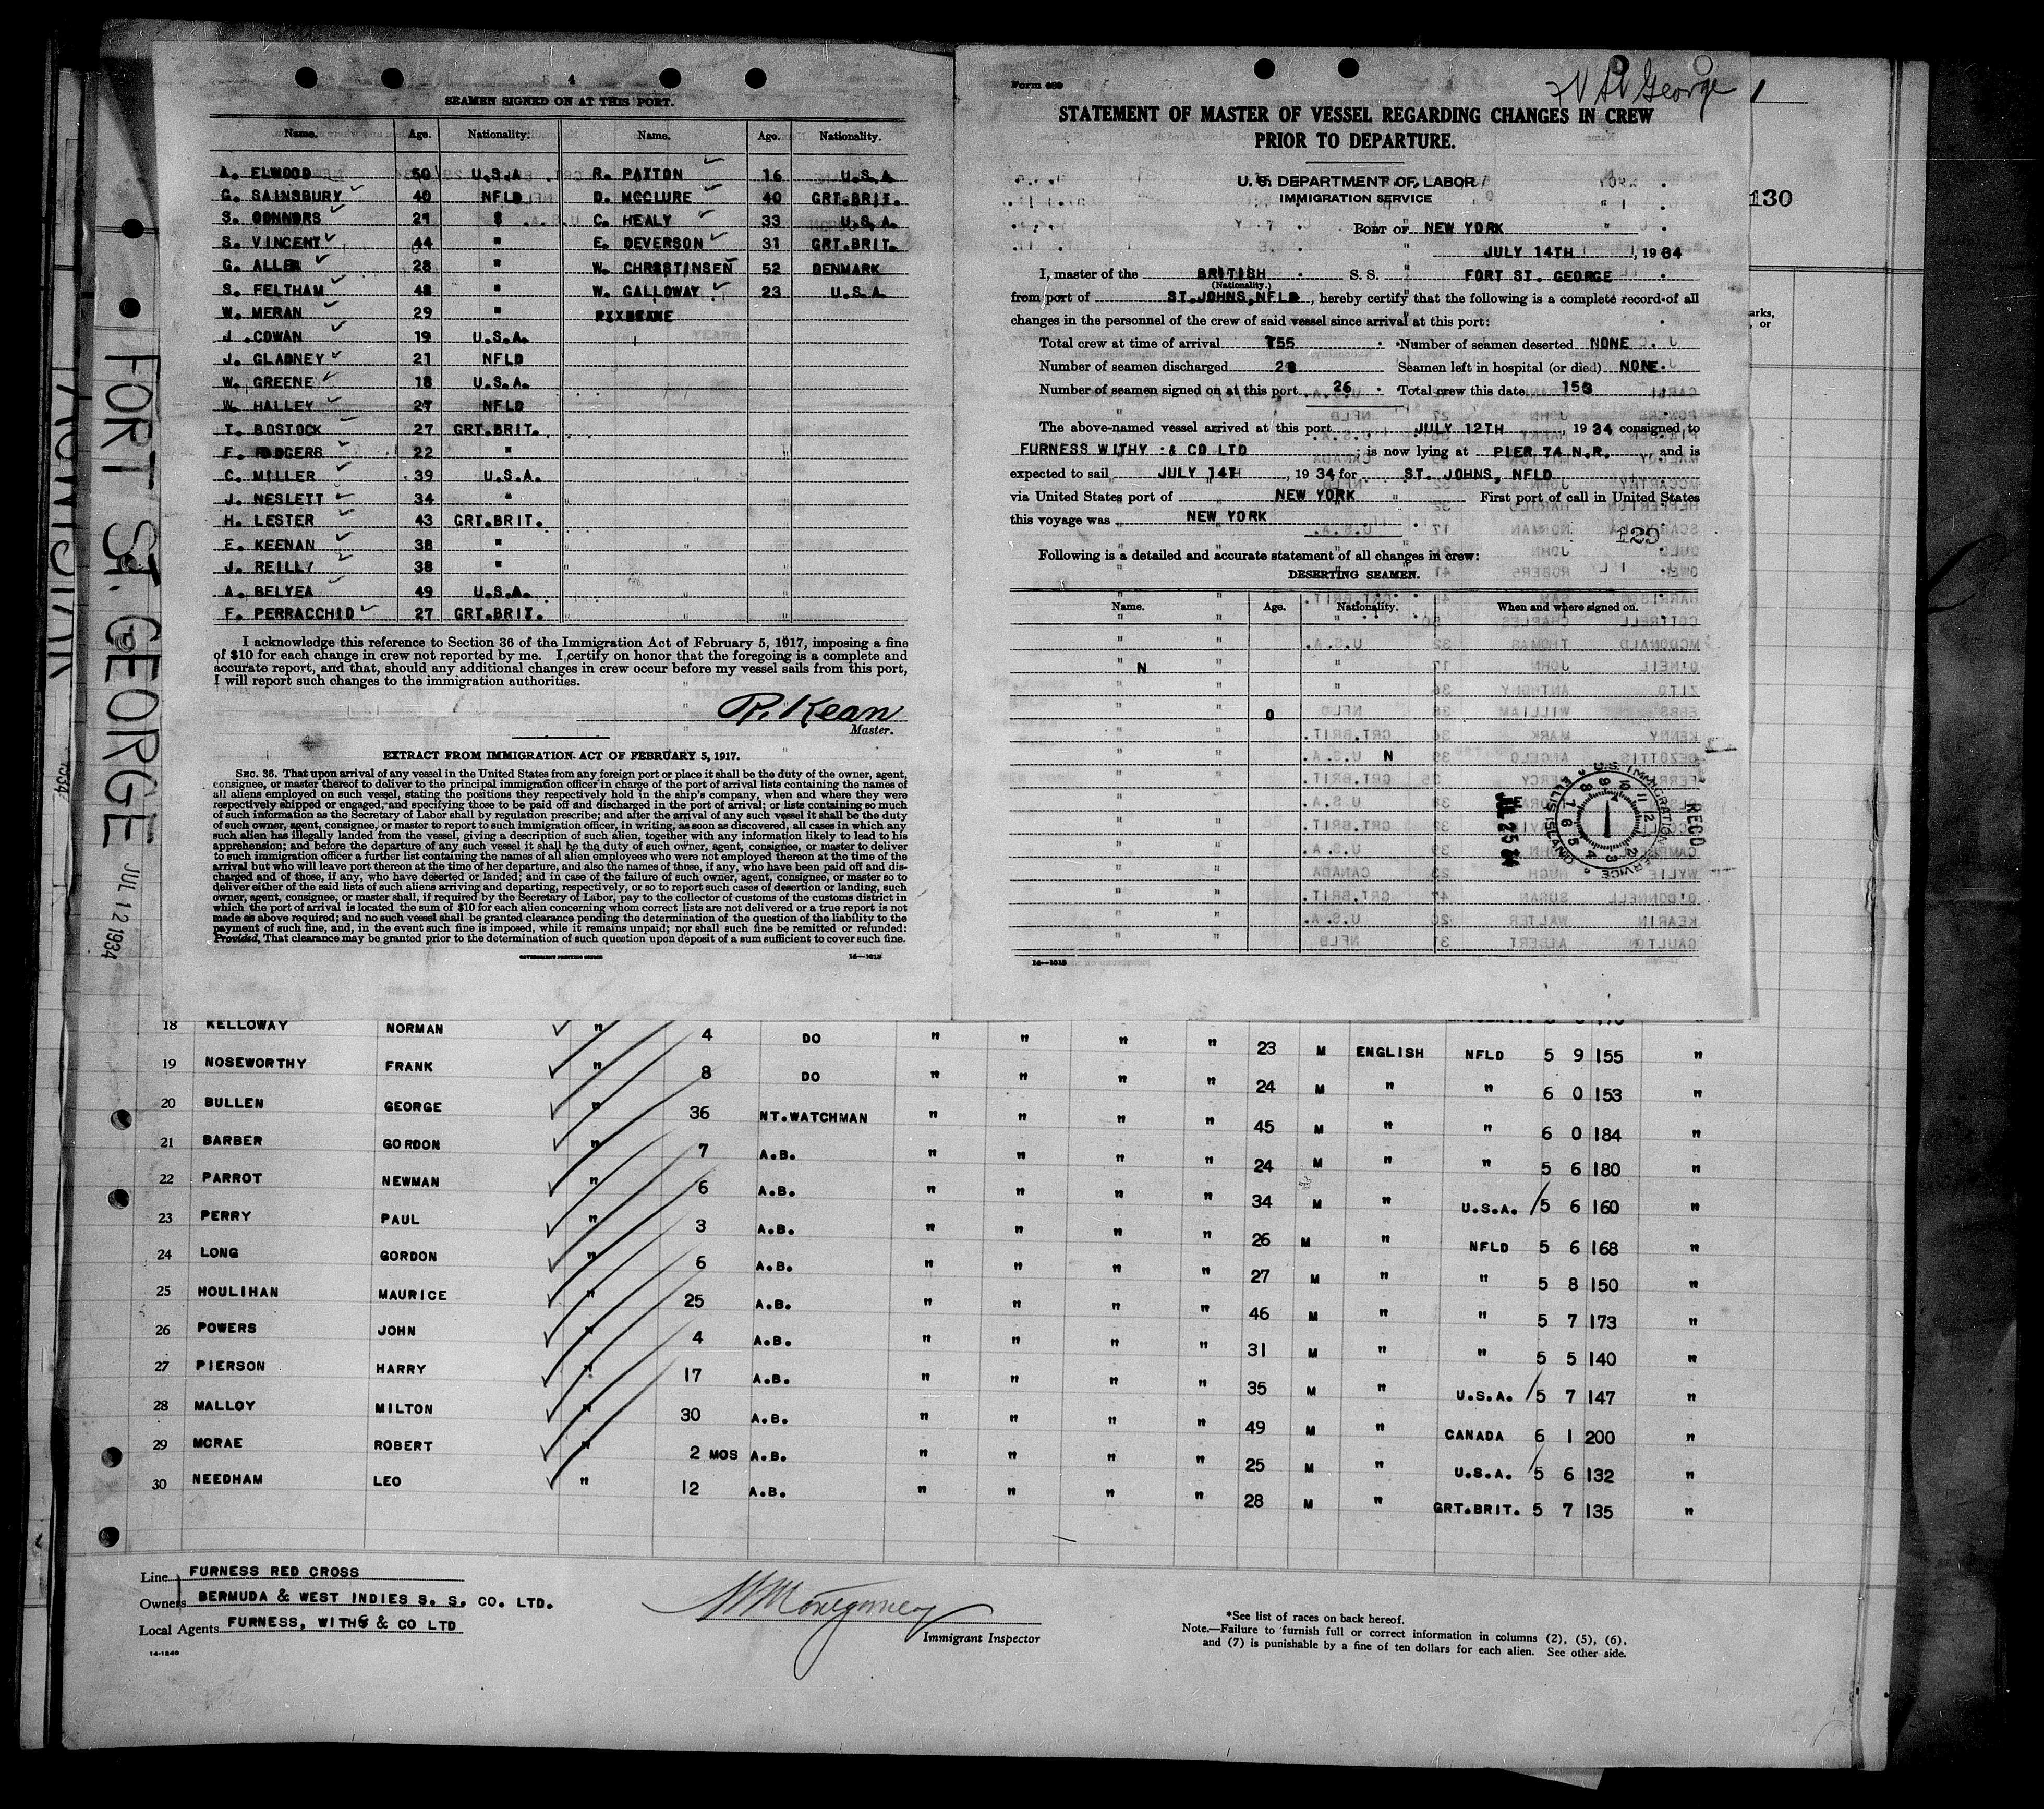 FORT ST. GEORGE
JUL 12 1934
4
SEAMEN SIGNED ON AT THIS PORT.
Name. Age. Nationality. Name. Age. Nationality.
A. ELWOOD 50 U.S.A R. PATTON 16 U.S.A.
G. SAINSBURY 40 NFLD D. MCCLURE 40 GRT.BRIT.
S. CONNORS 21 " C. HEALY 33 U.S.A.
S. VINCENT 44 " E. DEVERSON 31 GRT.BRIT.
G. ALLEN 28 " W. CHRSTINSEN 52 DENMARK
S. FELTHAM 48 " W. GALLOWAY 23 U.S.A.
W. MERAN 29 "
J. COWAN 19 U.S.A.
J. GLADNEY 21 NFLD
W. GREENE 18 U.S.A.
W. HALLEY 27 NFLD
T. BOSTOCK 27 GRT.BRIT.
F. RODGERS 22 "
C. MILLER 39 U.S.A.
J. NESLETT 34 "
H. LESTER 43 GRT.BRIT.
E. KEENAN 38 "
J. REILLY 38 "
A. BELYEA 49 U.S.A.
F. PERRACCHIO 27 GRT.BRIT.
I acknowledge this reference to Section 36 of the Immigration Act of February 5, 1917, imposing a fine
of $10 for each change in crew not reported by me. I certify on honor that the foregoing is a complete and
accurate report, and that, should any additional changes in crew occur before my vessel sails from this port,
I will report such changes to the immigration authorities.
R. Kean
Master.
EXTRACT FROM IMMIGRATION ACT OF FEBRUARY 5, 1917.
SEC. 36. That upon arrival of any vessel in the United States from any foreign port or place it shall be the duty of the owner, agent,
consignee, or master thereof to deliver to the principal immigration officer in charge of the port of arrival lists containing the names of
all aliens employed on such vessel, stating the positions they respectively hold in the ship's company, when and where they were
respectively shipped or engaged, and specifying those to be paid off and discharged in the port of arrival; or lists containing so much
of such information as the Secretary of Labor shall by regulation prescribe; and after the arrival of any such vessel it shall be the duty
of such owner, agent, consignee, or master to report to such immigration officer, in writing, as soon as discovered, all cases in which any
such alien has illegally landed from the vessel, giving a description of such alien, together with any information likely to lead to his
apprehension; and before the departure of any such vessel it shall be the duty of such owner, agent, consignee, or master to deliver
to such immigration officer a further list containing the names of all alien employees who were not employed thereon at the time of the
arrival but who will leave port thereon at the time of her departure, and also the names of those, if any, who have been paid off and dis-
charged and of those, if any, who have deserted or landed; and in case of the failure of such owner, agent, consignee, or master so to
deliver either of the said lists of such aliens arriving and departing, respectively, or so to report such cases of desertion or landing, such
owner, agent, consignee, or master shall, if required by the Secretary of Labor, pay to the collector of customs of the customs district in
which the port of arrival is located the sum of $10 for each alien concerning whom correct lists are not delivered or a true report is not
made as above required; and no such vessel shall be granted clearance pending the determination of the question of the liability to the
payment of such fine, and, in the event such fine is imposed, while it remains unpaid; nor shall such fine be remitted or refunded:
Provided, That clearance may be granted prior to the determination of such question upon deposit of a sum sufficient to cover such fine.
GOVERNMENT PRINTING OFFICE 14—1613
Form 689
St George
STATEMENT OF MASTER OF VESSEL REGARDING CHANGES IN CREW
PRIOR TO DEPARTURE.
U. S. DEPARTMENT OF LABOR
IMMIGRATION SERVICE
130
Port of NEW YORK
JULY 14TH, 1934
I, master of the BRITISH S. S. FORT ST. GEORGE
(Nationality.)
from port of ST.JOHNS,NFLD, hereby certify that the following is a complete record of all
changes in the personnel of the crew of said vessel since arrival at this port:
Total crew at time of arrival 155 Number of seamen deserted NONE
Number of seamen discharged 28 Seamen left in hospital (or died) NONE.
Number of seamen signed on at this port 26 Total crew this date 153
The above-named vessel arrived at this port JULY 12TH, 1934 consigned to
FURNESS WITHY & CO LTD; is now lying at PIER 74 N.R. and is
expected to sail JULY 14T, 1934 for ST. JOHNS, NFLD
via United States port of NEW YORK First port of call in United States
this voyage was NEW YORK
129
Following is a detailed and accurate statement of all changes in crew:
DESERTING SEAMEN.
Name. Age. Nationality. When and where signed on.
N
O
N
U.S. IMMIGRATION SERVICE ELLIS ISLAND
RECD
JUL 25 34
14—1613
18 KELLOWAY NORMAN " 4 DO " " " " 23 M ENGLISH NFLD 5 9 155 "
19 NOSEWORTHY FRANK " 8 DO " " " " 24 M " " 6 0 153 "
20 BULLEN GEORGE " 36 NT.WATCHMAN " " " " 45 M " " 6 0 184 "
21 BARBER GORDON " 7 A.B. " " " " 24 M " " 5 6 180 "
22 PARROT NEWMAN " 6 A.B. " " " " 34 M " U.S.A. 5 6 160 "
23 PERRY PAUL " 3 A.B. " " " " 26 M " NFLD 5 6 168 "
24 LONG GORDON " 6 A.B. " " " " 27 M " " 5 8 150 "
25 HOULIHAN MAURICE " 25 A.B. " " " " 46 M " " 5 7 173 "
26 POWERS JOHN " 4 A.B. " " " " 31 M " " 5 5 140 "
27 PIERSON HARRY " 17 A.B. " " " " 35 M " U.S.A. 5 7 147 "
28 MALLOY MILTON " 30 A.B. " " " " 49 M " CANADA 6 1 200 "
29 MCRAE ROBERT " 2 MOS A.B. " " " " 25 M " U.S.A. 5 6 132 "
30 NEEDHAM LEO " 12 A.B. " " " " 28 M " GRT.BRIT. 5 7 135 "
Line FURNESS RED CROSS
Owners BERMUDA & WEST INDIES S. S. CO. LTD.
Local Agents FURNESS, WITHY & CO LTD
14-1240
Montgomery
Immigrant Inspector
*See list of races on back hereof.
Note.—Failure to furnish full or correct information in columns (2), (5), (6),
and (7) is punishable by a fine of ten dollars for each alien. See other side.